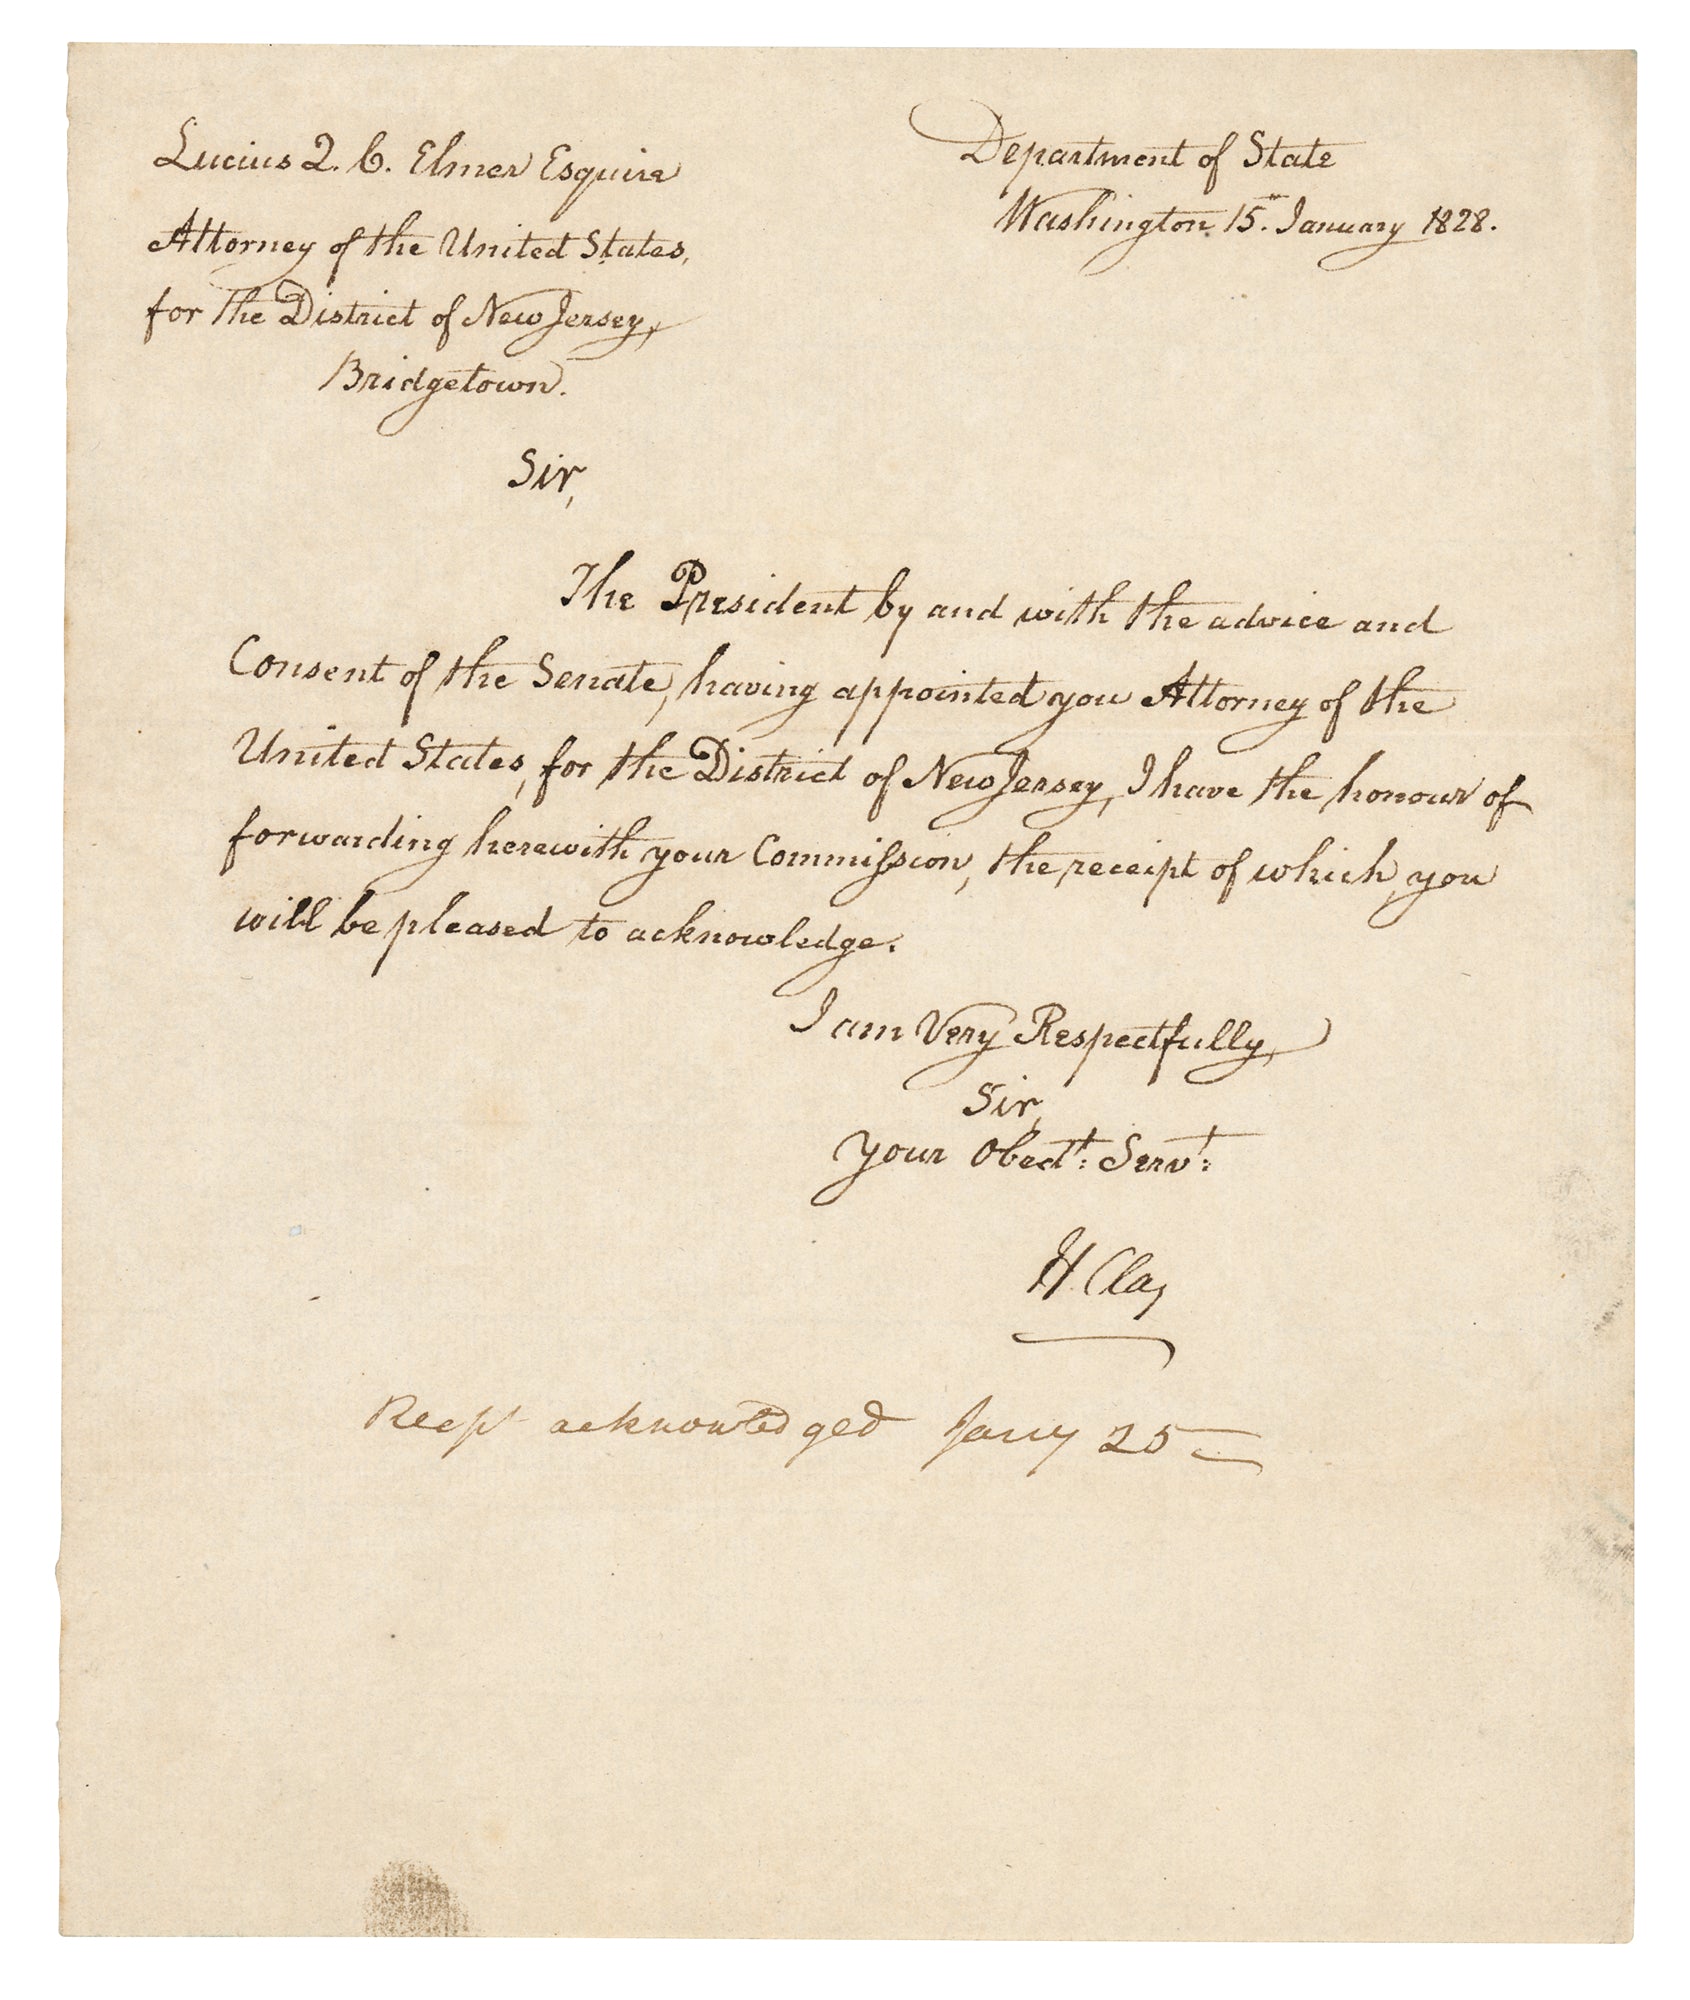 Lucius Q. C. Elmer Esquire
Attorney of the United States,
for the District of New Jersey,
Bridgetown.
Department of State
Washington 15th. January 1828.
Sir,
The President by and with the advice and
Consent of the Senate, having appointed you Attorney of the
United States, for the District of New Jersey, I have the honour of
forwarding herewith your Commission, the receipt of which you
will be pleased to acknowledge.
I am Very Respectfully,
Sir,
your Obedt: Servt:
H. Clay
Recpt acknowledged Jany 25